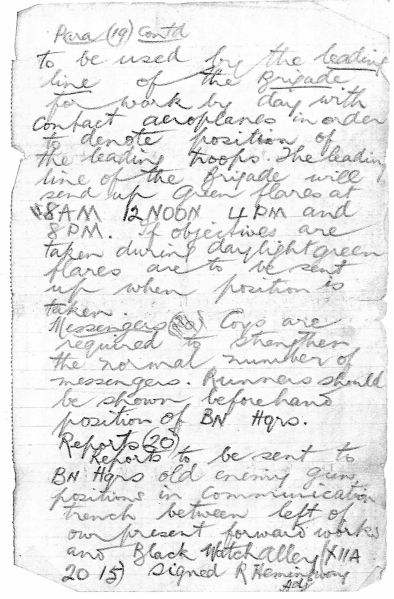 Para (19) Contd
to be used by the leading
line of the Brigade
for work by day with
contact aeroplanes in order
to denote position of
the leading troops. The leading
line of the Brigade will
send up Green flares at
8AM 12 NOON 4 PM and
8PM. If objectives are
taken during daylight green
flares are to be sent
up when position is
taken.
Messengers Coys are
required to strengthen
the normal number of
messengers. Runners should
be shown beforehand
position of BN Hqrs.
Reports (20)
Reports to be sent to
BN Hqrs old enemy gun
positions in Communication
trench between left of
our present forward works
and Black Watch Alley (XIIA
20 15) signed R Hemingway
Adj